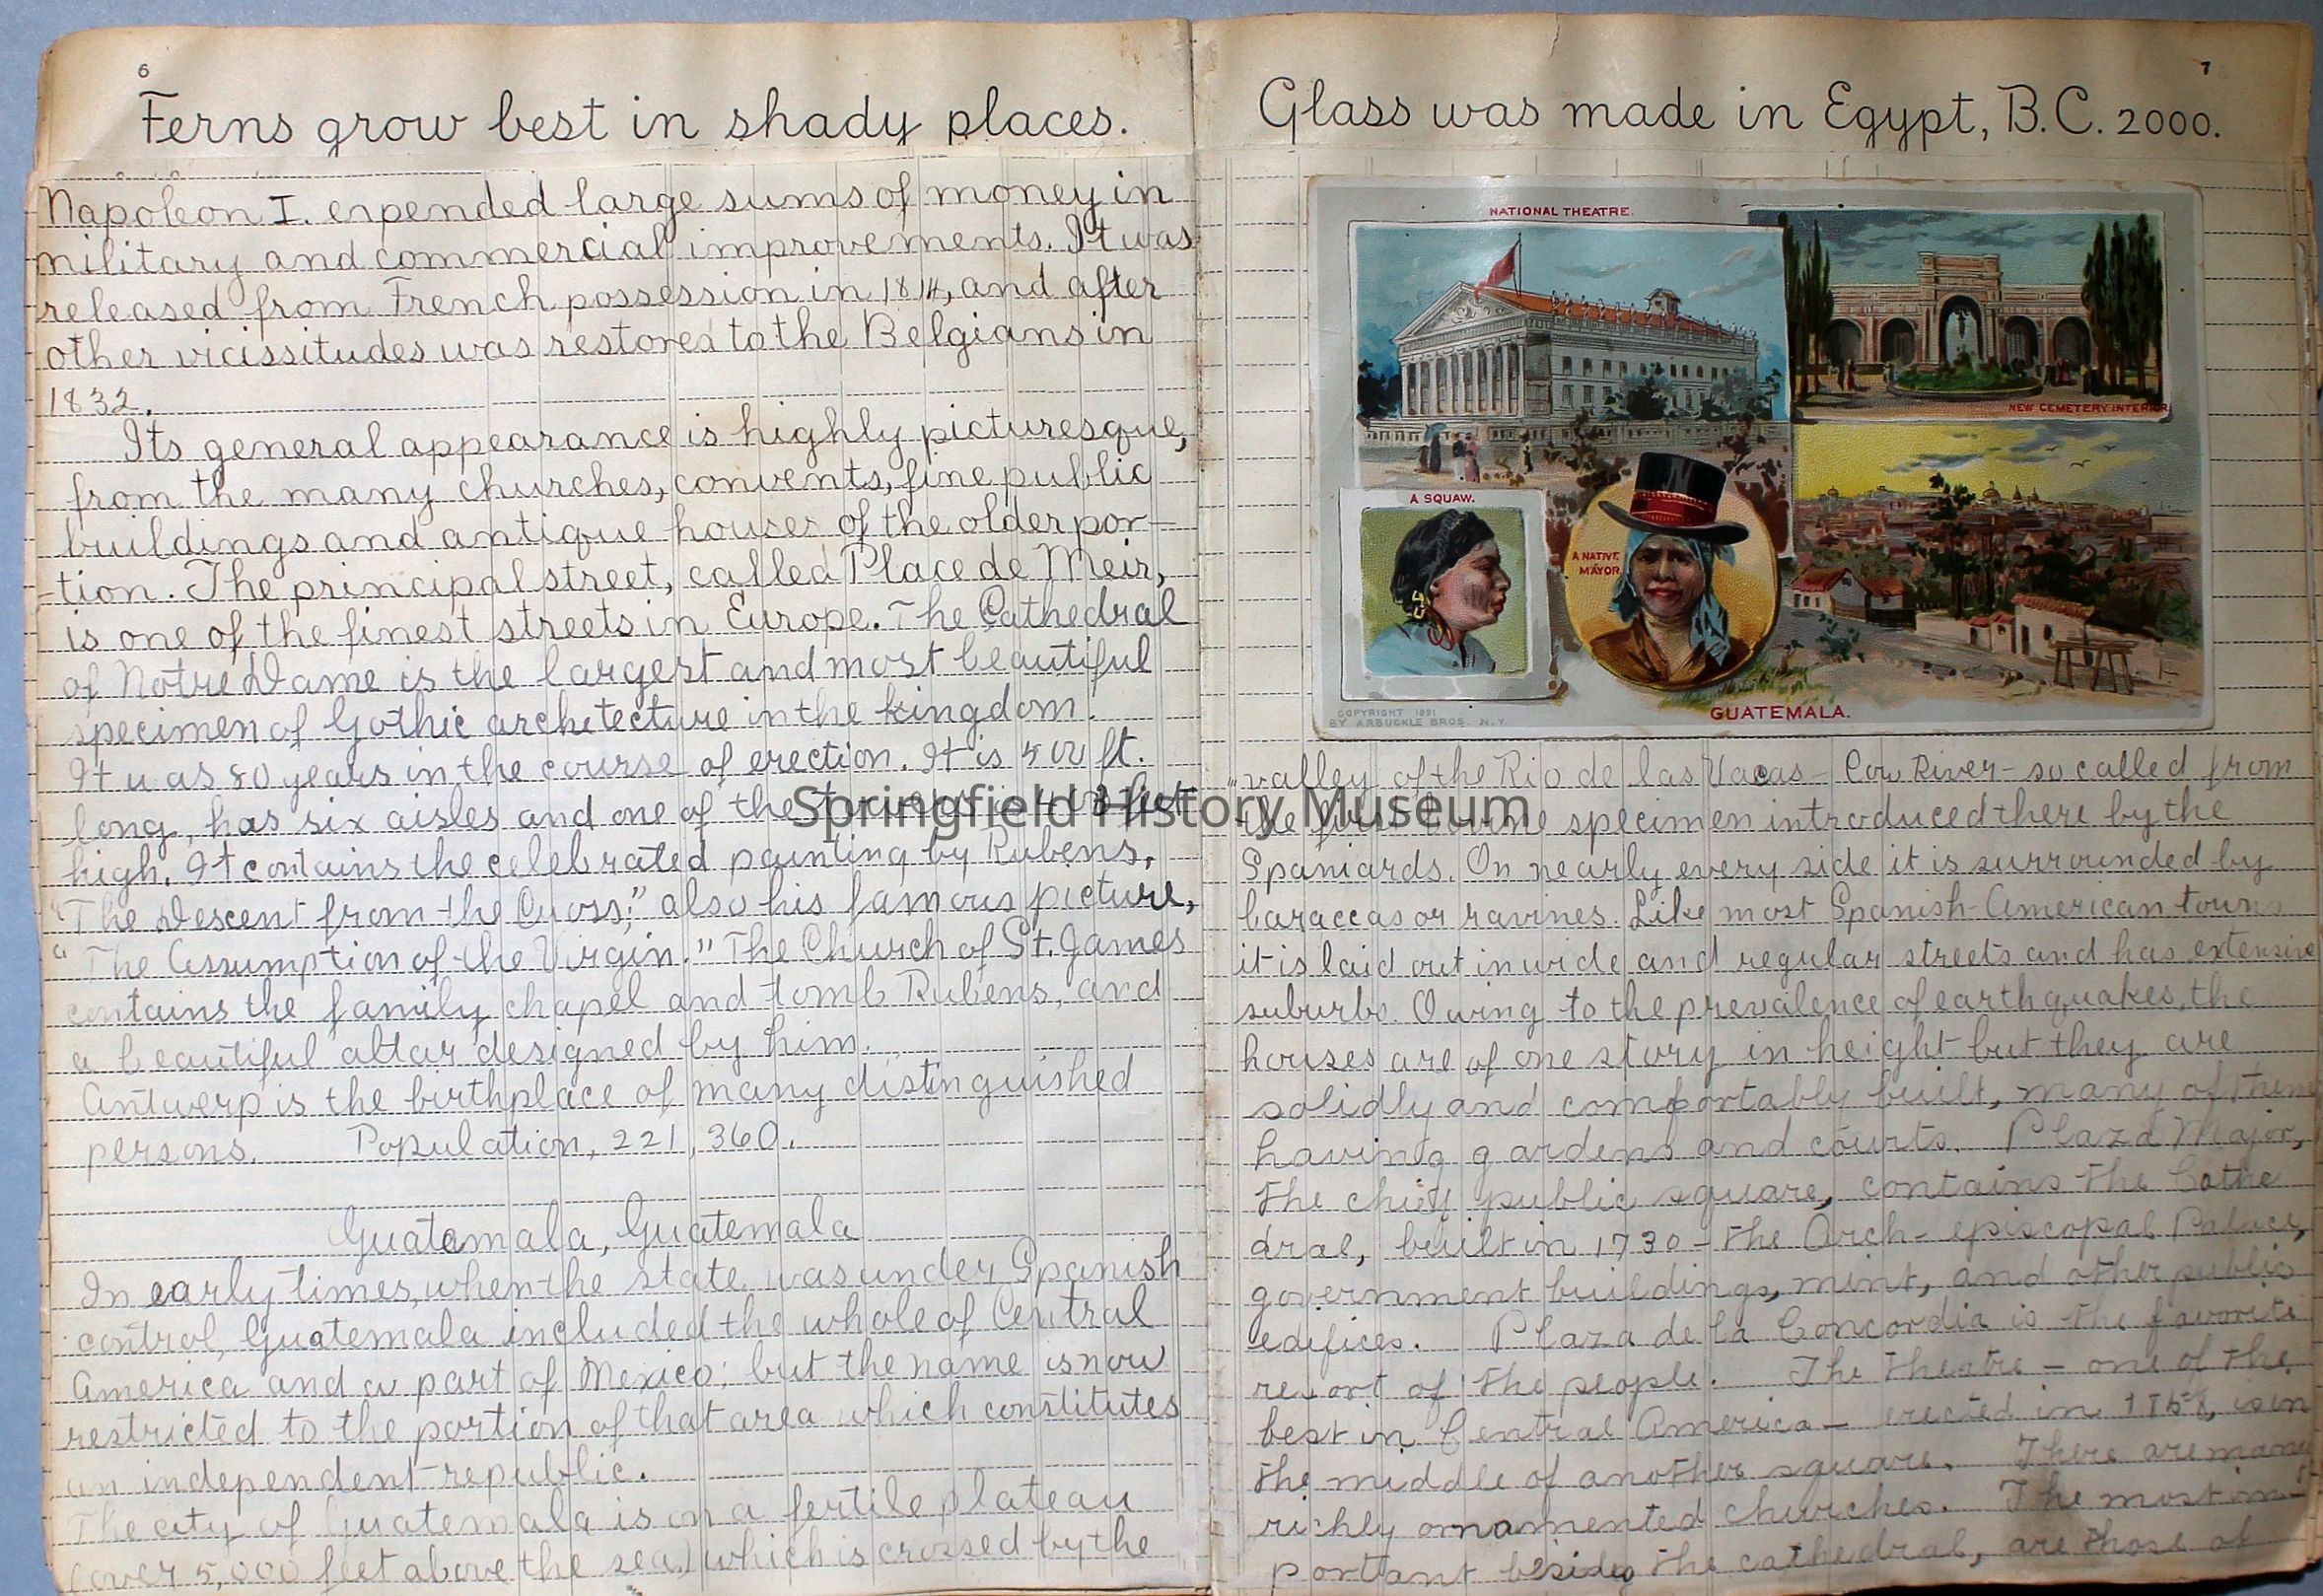 6
Ferns grow best in shady places.
Napoleon I. expended large sums of money in
military and commercial improvements. It was
released from French possession in 1814, and after
other vicissitudes was restored to the Belgians in
1832.
Its general appearance is highly picturesque,
from the many churches, convents, fine public
buildings and antique houses of the older por-
-tion. The principal street, called Place de Meir,
is one of the finest streets in Europe. The Cathedral
of Notre Dame is the largest and most beautiful
specimen of Gothic architecture in the kingdom.
It was 80 years in the course of erection. It is 500 ft.
long, has six aisles and one of the towers is 403 feet
high. It contains the celebrated painting by Rubens,
"The Descent from the Cross;" also his famous picture,
"The Assumption of the Virgin." The Church of St. James
contains the family chapel and tomb Rubens, and
a beautiful altar designed by him.
Antwerp is the birthplace of many distinguished
persons. Population, 221,360.
Guatemala, Guatemala
In early times, when the state was under Spanish
control, Guatemala included the whole of Central
America and a part of Mexico; but the name is now
restricted to the portion of that area which constitutes
an independent republic.
The city of Guatemala is on a fertile plateau
(over 5,000 feet above the sea) which is crossed by the
7
Glass was made in Egypt, B.C. 2000.
NATIONAL THEATRE.
NEW CEMETERY INTERIOR
A SQUAW.
A NATIVE
MAYOR.
COPYRIGHT 1891
BY ARBUCKLE BROS. N.Y.
GUATEMALA.
"valley of the Rio de las Vacas - Cow River - so called from
the first bovine specimen introduced there by the
Spaniards. On nearly every side it is surrounded by
baraccas or ravines. Like most Spanish-American towns
it is laid out in wide and regular streets and has extensive
suburbs. Owing to the prevalence of earthquakes, the
houses are of one story in height but they are
solidly and comfortably built, many of them
having gardens and courts. Plaza Major,
the chief public square, contains the Cathe
dral, built in 1730 - the Arch-episcopal Palace,
government buildings, mint, and other public
edifices. Plaza de la Concordia is the favorite
resort of the people. The theatre - one of the
best in Central America - erected in 1858, is in
the middle of another square. There are many
richly ornamented churches. The most im-
portant besides the cathedral, are those of
Springfield History Museum